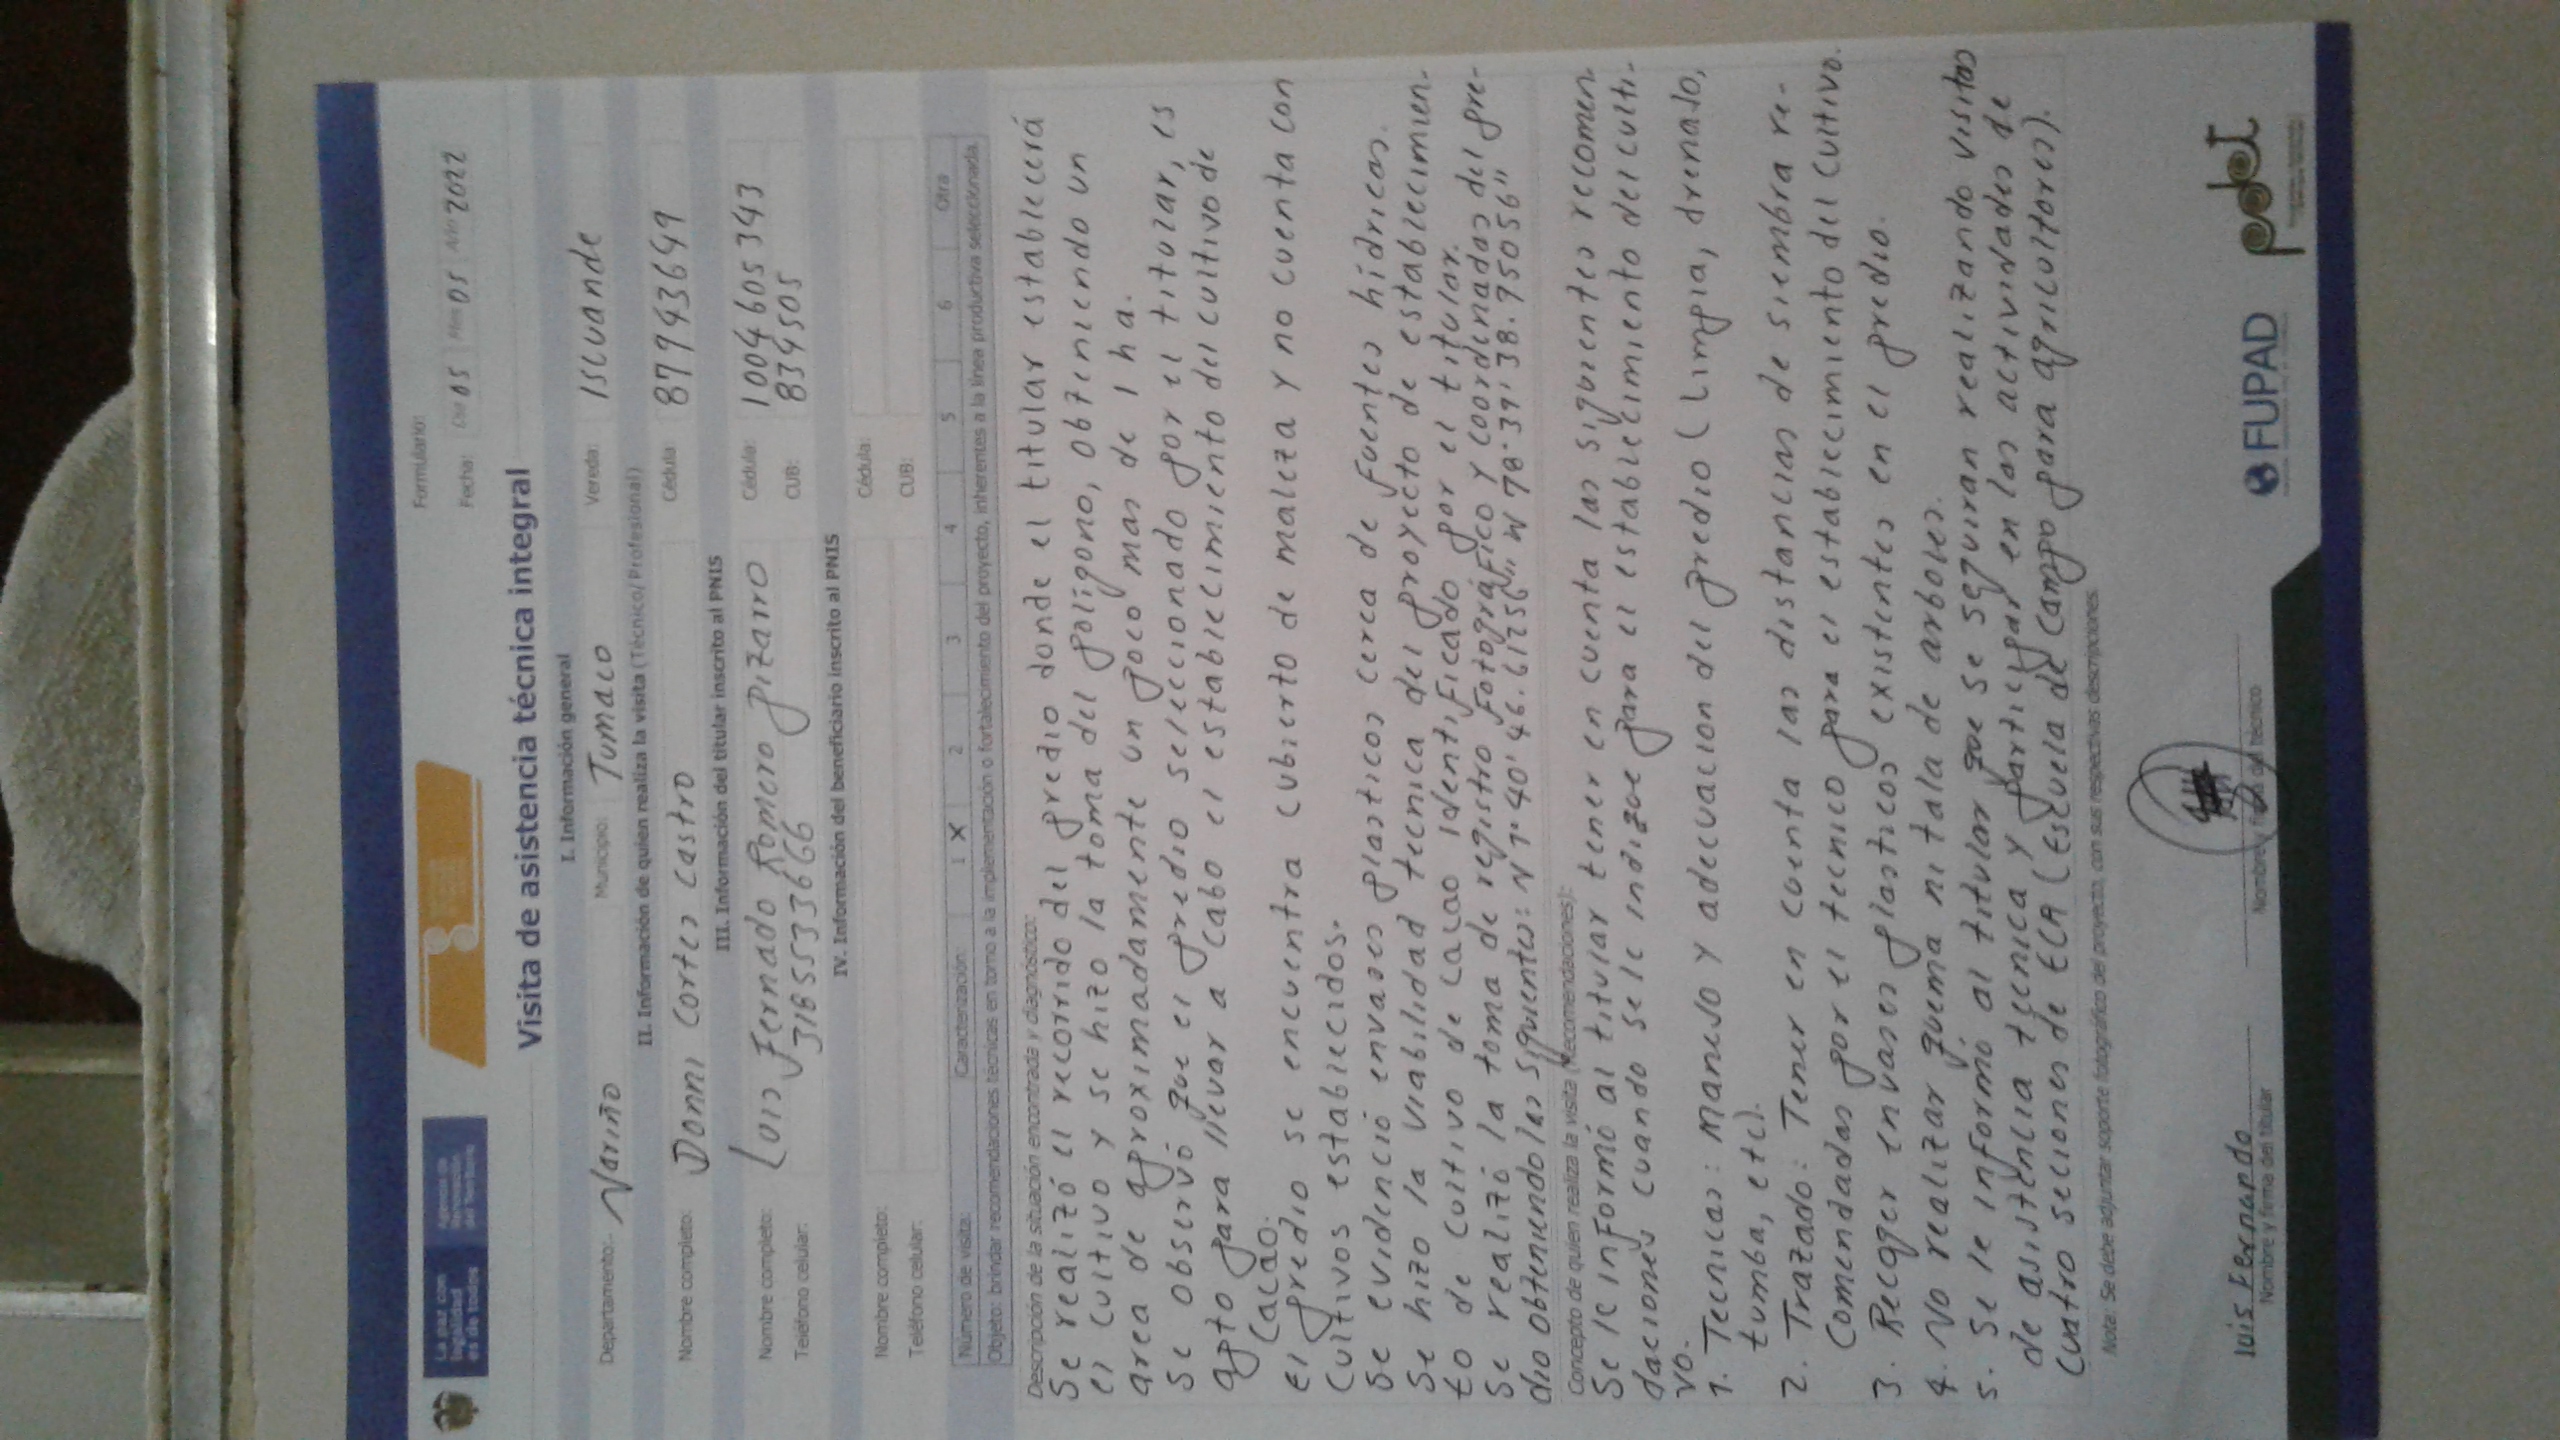 La paz con
legalidad
es de todos
Agencia de
Renovación
del Territorio
Formulario:
Fecha: Día 05 Mes 05 Año 2022
Visita de asistencia técnica integral
I. Información general
Departamento: Nariño Municipio: Tumaco Vereda: Iscuande
II. Información de quien realiza la visita (Técnico/Profesional)
Nombre completo: Donni Cortes Castro Cédula 87943649
III. Información del titular inscrito al PNIS
Nombre completo: Luis Fernado Romero Pizarro Cédula: 1004605343
Teléfono celular: 3185533666 CUB: 834505
IV. Información del beneficiario inscrito al PNIS
Nombre completo: Cédula:
Teléfono celular: CUB:
Número de visita: Caracterización 1 X 2 3 4 5 6 Otra
Objeto: brindar recomendaciones técnicas en torno a la implementación o fortalecimiento del proyecto, inherentes a la línea productiva seleccionada.
Descripción de la situación encontrada y diagnóstico:
Se realizó el recorrido del predio donde el titular establecerá
el cultivo y se hizo la toma del polígono, obteniendo un
area de aproximadamente un poco mas de 1 ha.
Se observó que el predio seleccionado por el titular, es
apto para llevar a cabo el establecimiento del cultivo de
Cacao.
el predio se encuentra cubierto de maleza y no cuenta con
Cultivos establecidos.
Se evidenció envases plasticos cerca de fuentes hídricas.
Se hizo la viabilidad tecnica del proyecto de establecimien-
to de cultivo de cacao identificado por el titular.
Se realizó la toma de registro fotográfico y coordenadas del pre-
dio obteniendo las siguientes: N 1°40'46.61256" W 78°39'38.75056"
Concepto de quien realiza la visita (Recomendaciones):
Se le informó al titular tener en cuenta las siguientes recomen
daciones cuando se le indique para el establecimiento del culti-
vo.
1. Tecnicas: manejo y adecuacion del predio (Limpia, drenado,
tumba, etc).
2. Trazado: Tener en cuenta las distancias de siembra re-
Comendadas por el tecnico para el establecimiento del cultivo.
3. Recoger envases plasticos existentes en el predio.
4. No realizar quema ni tala de arboles.
5. Se le informó al titular que se seguiran realizando visitas
de asistencia tecnica y participar en las actividades de
cuatro seciones de ECA (Escuela de Campo para agricultores).
Nota: Se debe adjuntar soporte fotográfico del proyecto, con sus respectivas descripciones.
luis Fernando
Nombre y firma del titular Nombre y firma del técnico
FUPAD
pdet